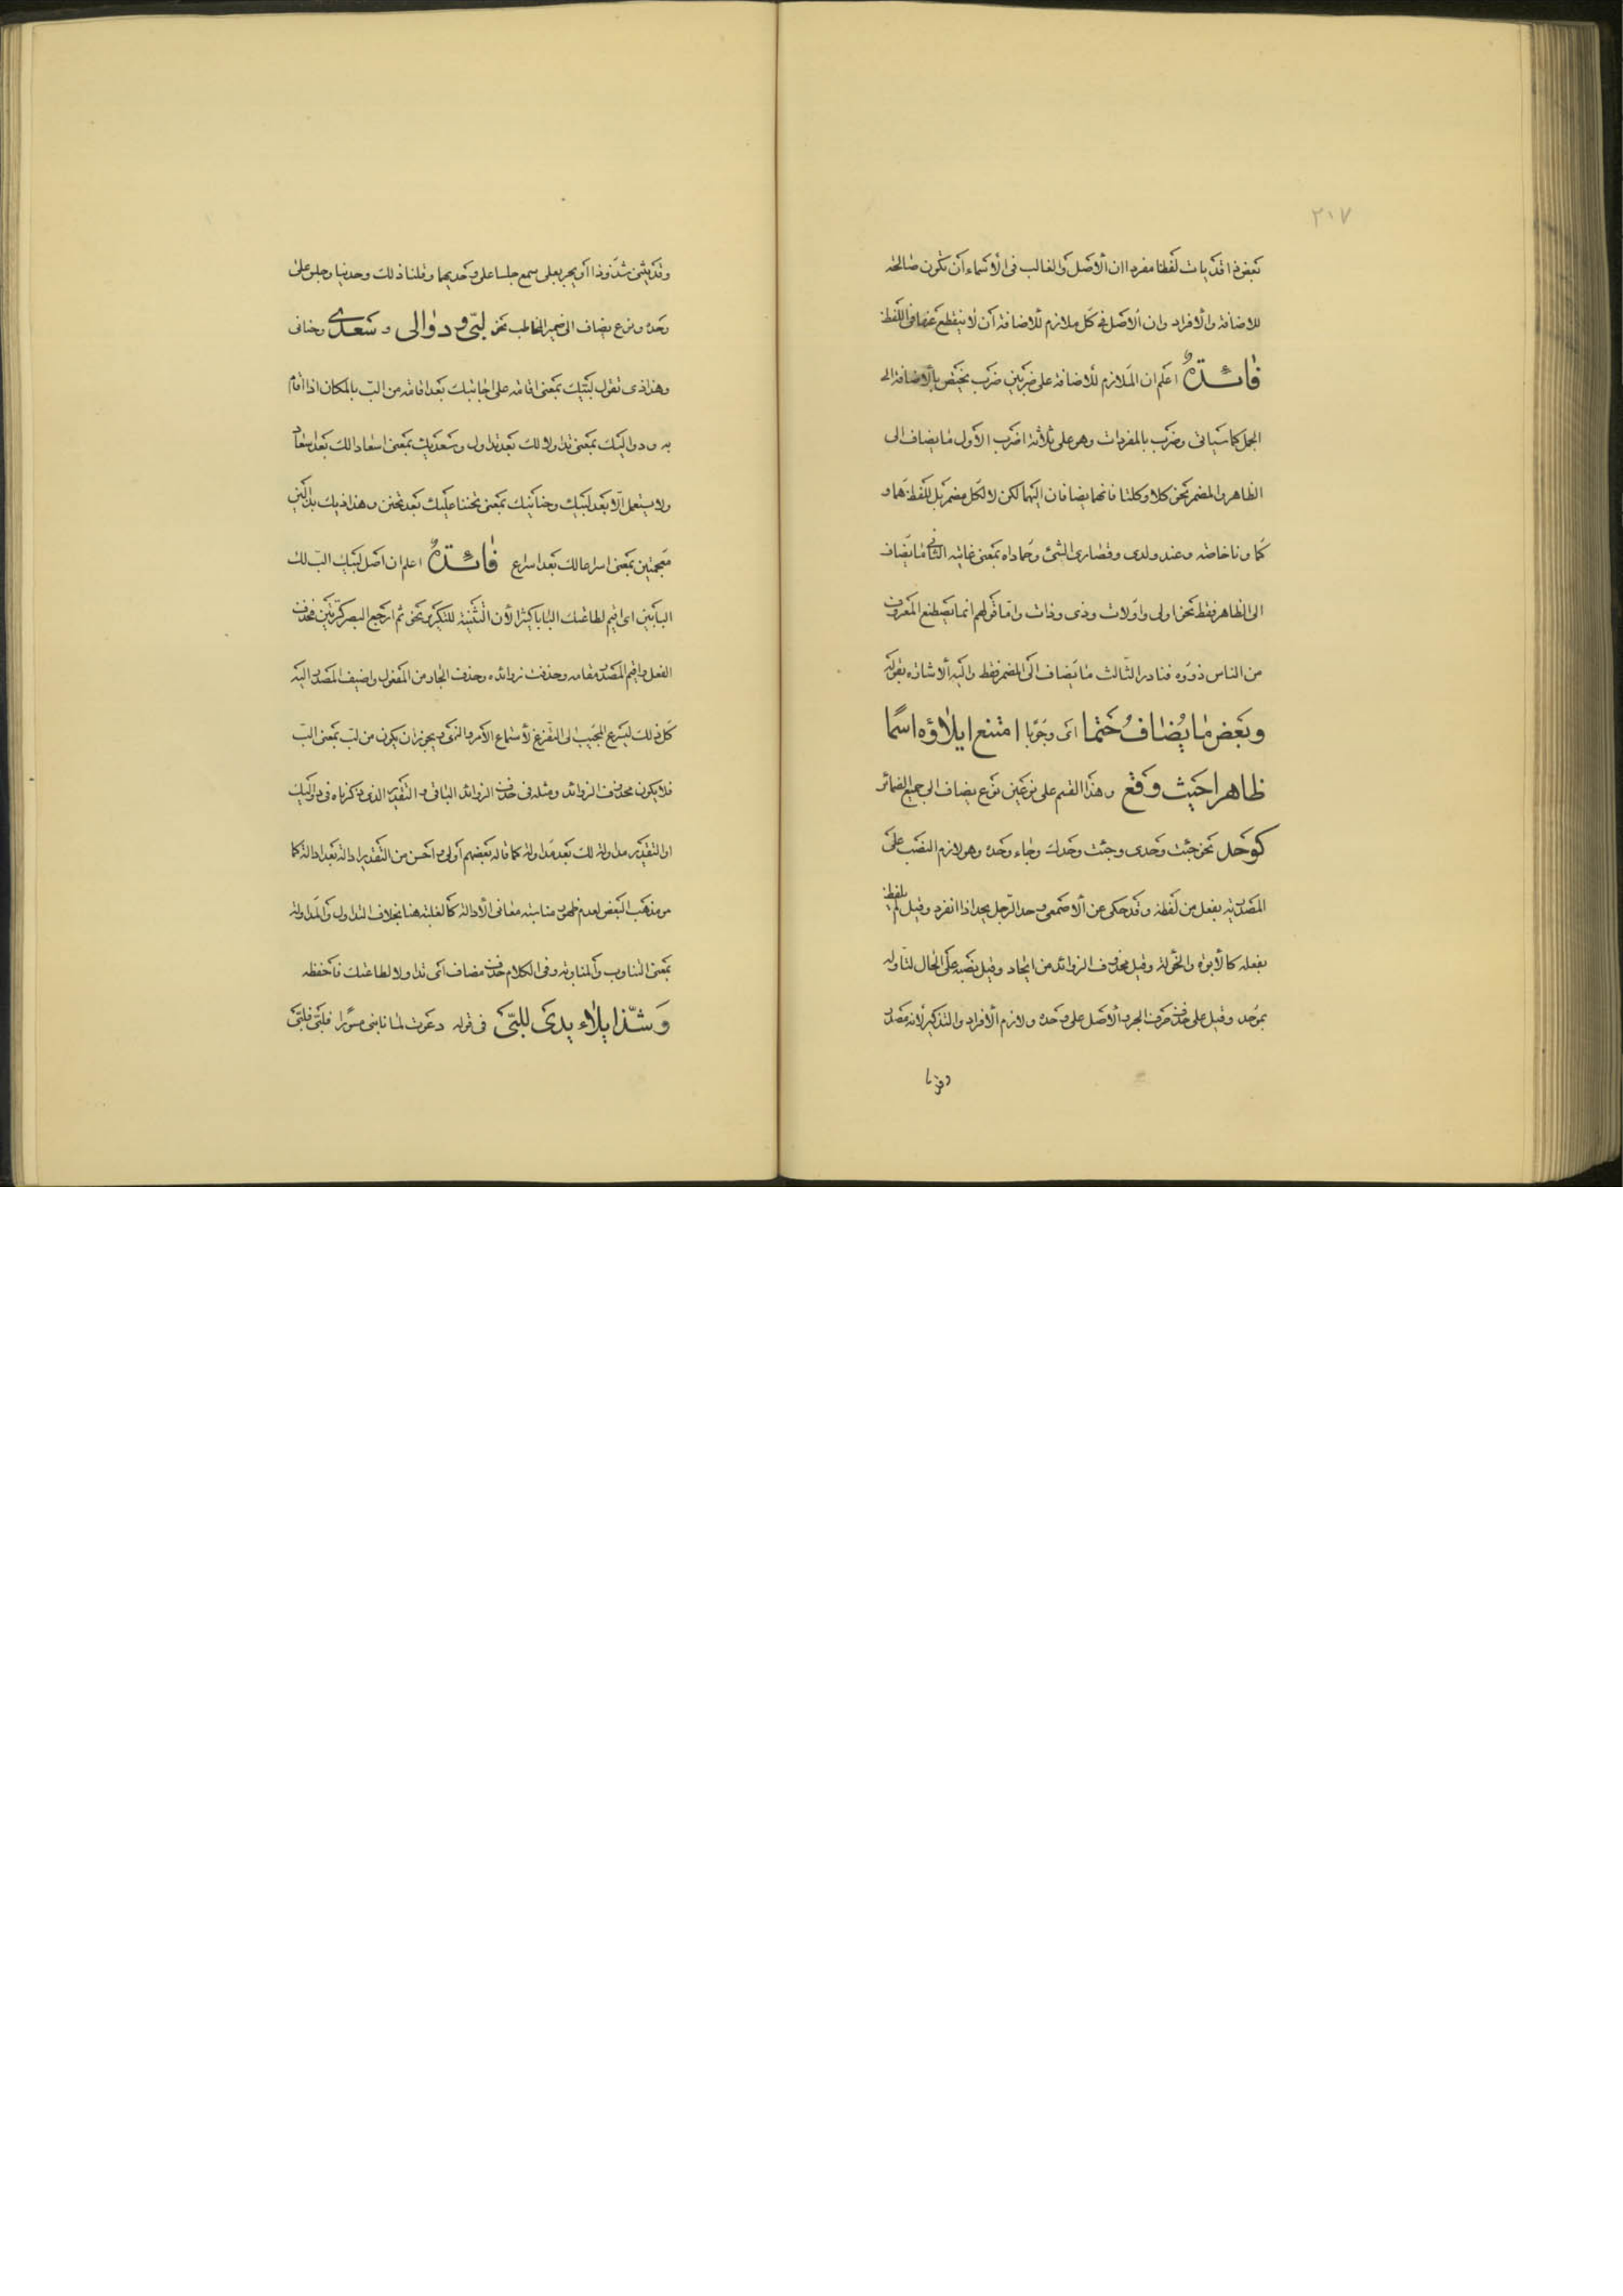 ٢١٧
بعض ذا قد يات لفظا مفردا ان الاصل والغالب فى الاسماء ان تكون صالحة
للاضافة والافراد وان الاصل فى كل ملازم للاضافة ان لا ينقطع عنها فى اللفظ
فائدة اعلم ان الملازم للاضافة على ضربين ضرب يختص بالاضافة الى
الجمل كما سياتى وضرب بالمفردات وهو على ثلاثة اضرب الاول ما يضاف الى
الظاهر والمضمر نحو كلا وكلتا فانهما يضافان اليهما لكن لا لكل مضمر بل للفظ هما و
كما ونا خاصة وعند ولدى وقصارى الشئ وحماداه بمعنى غايته الثانى ما يضاف
الى الظاهر فقط نحو اولى واولات وذى وذات واما قولهم انما يصطنع المعروف
من الناس ذووه فنادر الثالث ما يضاف الى المضمر فقط واليه الاشارة بقوله
وبعض ما يضاف حتما اى وجوبا امتنع ايلاؤه اسما
ظاهرا حيث وقع وهذا القسم على نوعين نوع يضاف الى جميع الضمائر
كوحد نحو جئت وحدى وجئت وحدك وجاء وحده وهو لازم النصب على
المصدرية بفعل من لفظه وقد حكى عن الاصمعى وحد الرجل يحد اذا انفرد وقيل لم يلفظ
بفعله كالابوة والخؤلة وقيل محذوف الزوائد من ايحاد وقيل نصبه على الحال لتاوله
بموحد وقيل على حذف حرف الجر والاصل على وحده ولازم الافراد والتذكير لانه مصدر
وقد يثنى شذوذا او يجر بعلى سمع جلسا على وحديهما وقلنا ذلك وحدينا وجلس على
وحده ونوع يضاف الى ضمير المخاطب نحو لبى ودوالى وسعدى وحنانى
وهذاذى تقول لبيك بمعنى اقامة على اجابتك بعد اقامة من الب بالمكان اذا اقام
به ودواليك بمعنى تداولا لك بعد تداول وسعديك بمعنى اسعادا لك بعد اسعاد
ولا يستعمل الا بعد لبيك وحنانيك بمعنى تحننا عليك بعد تحنن وهذاذيك بذالين
معجمتين بمعنى اسراعا لك بعد اسراع فائدة اعلم ان اصل لبيك الب لك
البابين اى اقيم لطاعتك البابا كثيرا لان التثنية للتكرير نحو ثم ارجع البصر كرتين فحذف
الفعل واقيم المصدر مقامه وحذفت زوائده وحذف الجار من المفعول واضيف المصدر اليه
كل ذلك ليسرع المجيب الى التفرغ لاستماع الامر والنهى ويجوز ان يكون من لب بمعنى الب
فلا يكون محذوف الزوائد ومثله فى حذف الزوائد الباقى والتقدير الذى ذكرناه فى دواليك
او التقدير مداولة لك بعد مداولة كما قاله بعضهم اولى واحسن من التقدير ادالة بعد ادالة كما
هو مذهب البعض لعدم ظهور مناسبة معانى الادالة كالغلبة هنا بخلاف التداول والمداولة
بمعنى التناوب والمناوبة وفى الكلام حذف مضاف اى تداولا لطاعتك فاحفظه
وشذ ايلاء يدى للبى فى قوله دعوت لما نابنى مسورا فلبى فلبى